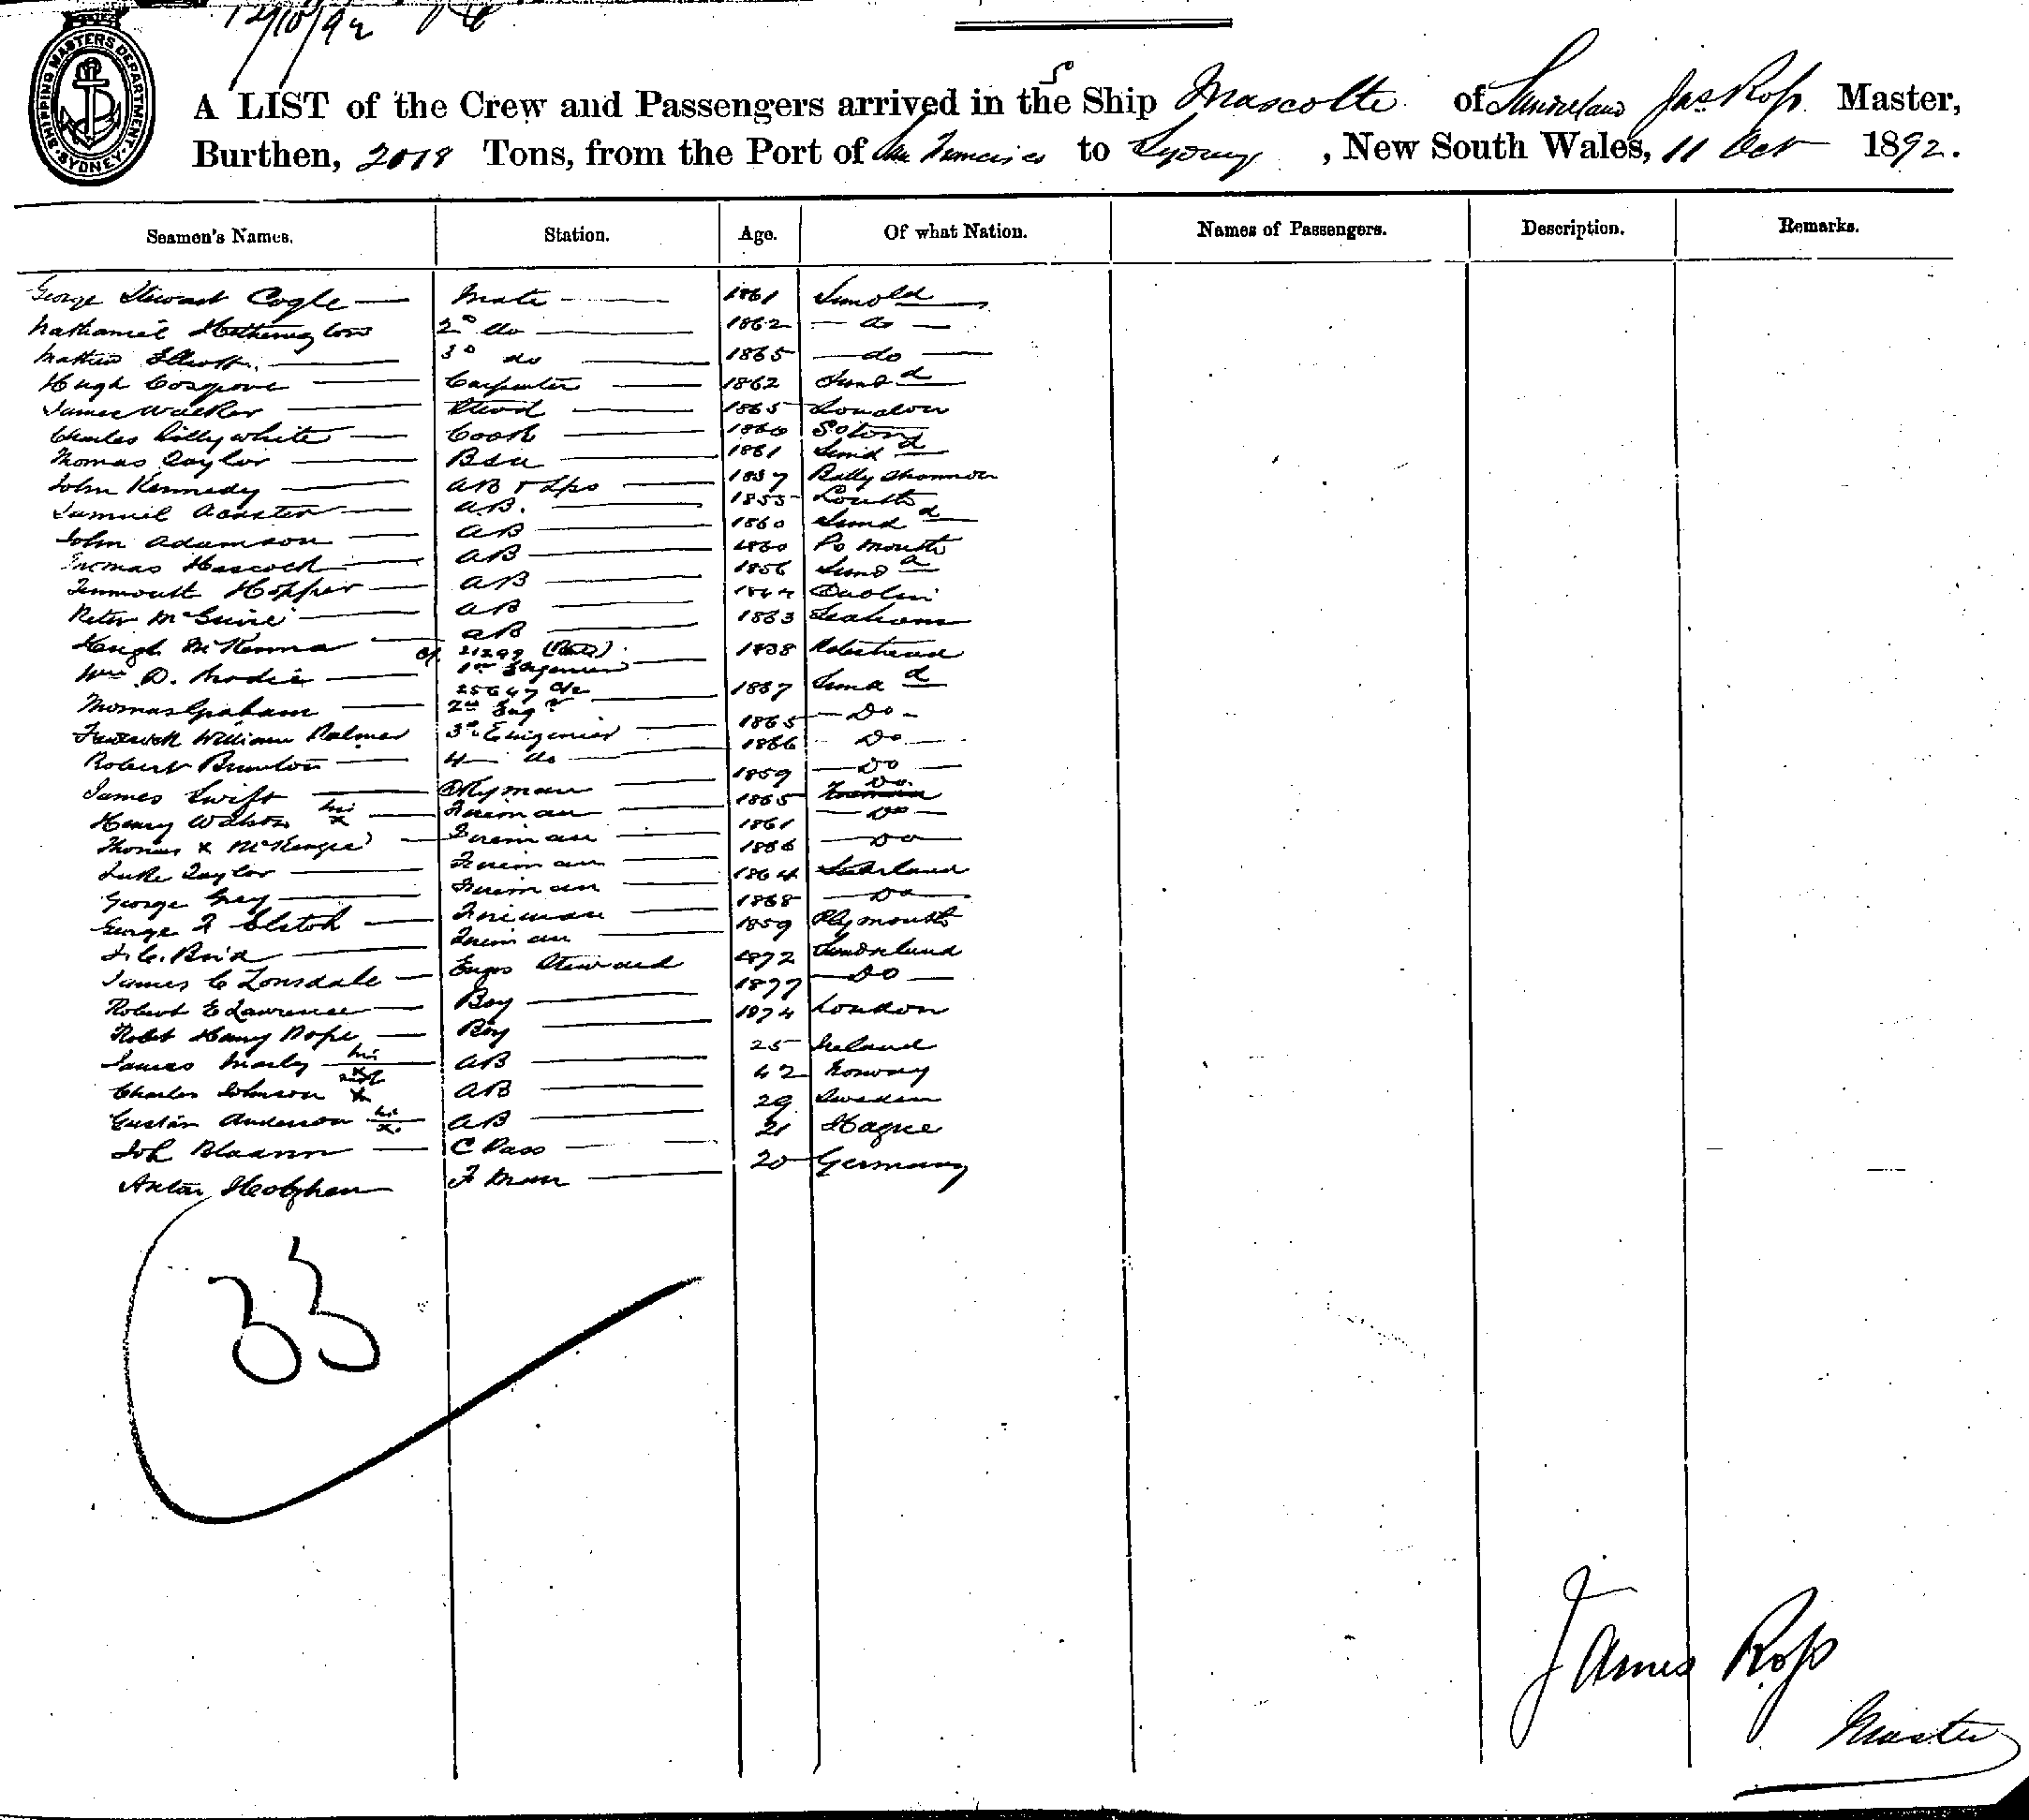 12/10/92
SHIPPING MASTERS DEPARTMENT SYDNEY
A LIST of the Crew and Passengers arrived in the SS Ship Mascotte of Sunderland Jas Ross Master,
Burthen, 2018 Tons, from the Port of San Francisco to Sydney, New South Wales, 11 Oct 1892.
Seamen's Names. Station. Age. Of what Nation. Names of Passengers. Description. Remarks.
George Stewart Cogle Mate 1861 Sunold
Nathaniel Hetherington 2nd do 1862 do
Mathew Elliott 3rd do 1865 do
Hugh Cosgrove Carpenter 1862 Sund
James Walker Stewd 1865 London
Charles Lillywhite Cook 1860 Soton
Thomas Taylor Bsn 1861 Sund
John Kennedy AB & Lps 1857 Bally Shannon
Samuel Acaster A.B. 1855 Louth
John Adamson AB 1860 Sund
Thomas Hascock AB 1860 Po mouth
Tenmouth Hopper AB 1856 Sund
Peter McGuire AB 1864 Dublin
Hugh McKenna AB 1863 Seaham
Wm D. Brodie 21299 1st Engineer 1838
Thomas Graham 25647 2nd Engr 1857 Sund
Frederick William Palmer 3rd Engineer 1865 Do
Robert Brunton 4 do 1866 Do
James Swift Dkyman 1859 Do
Henry Watson his x Fireman 1865 Do
Thomas x McKenzie Fireman 1861 Do
Luke Taylor Fireman 1866 Do
George Grey Fireman 1864 Sunderland
George F Clatok Fireman 1868 Do
J. C. Reid Fireman 1859 Plymouth
James C Lonsdale Engrs Steward 1872 Sunderland
Robert E Lawrence Boy 1877 Do
Robt Henry Pope Boy 1874 London
James Marley his x AB 25 Ireland
Charles Johnson x AB 42 Norway
Gustav Anderson his x AB 29 Sweden
Joh Blaann C Pass 21 Hague
Anton F man 20 Germany
33
James Ross
Master